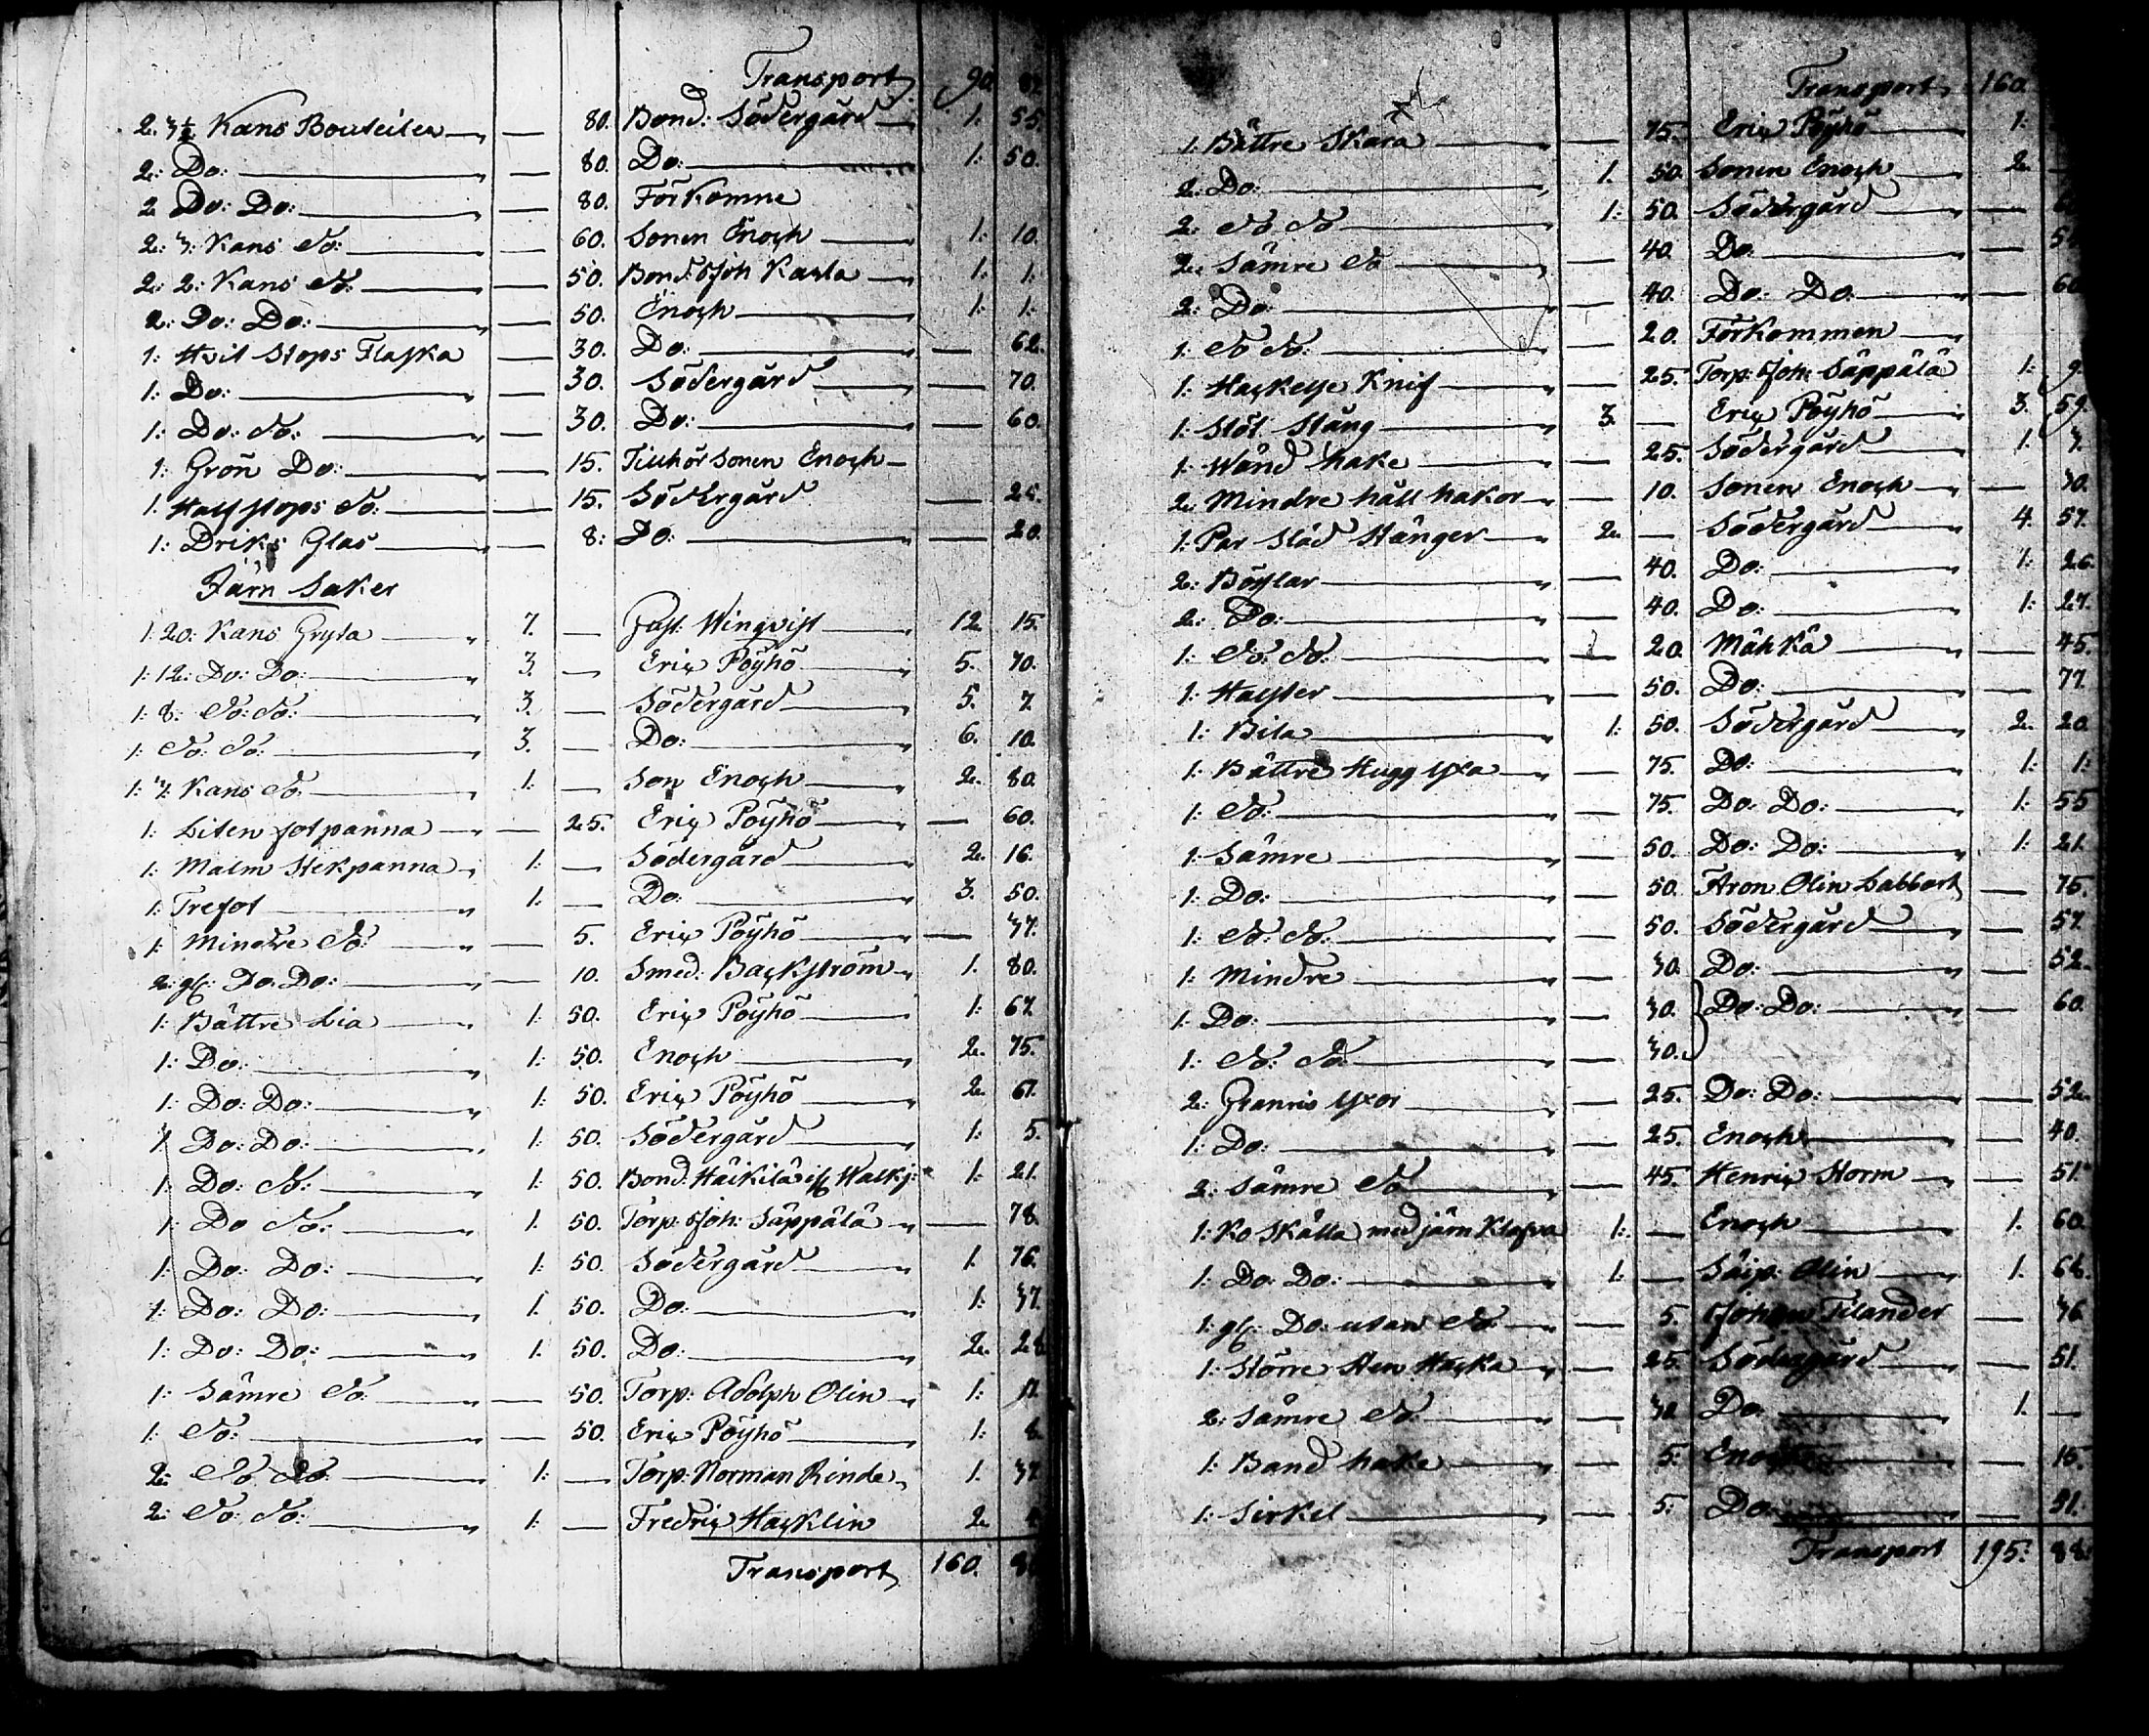 Transport 90. 87.
2. 3½ Kans Bouteiler — 80. Bond: Södergård 1. 55.
2: Do: — 80. Do: 1: 50.
2 Do: Do: — 80. Förkomne
2: 3: Kans do: — 60. Sonen Enoch 1: 10.
2: 2: Kans do: — 50. Bond: Joh Kaula 1: 1.
2: Do: Do: — 50. Enoch 1: 1:
1: Hvit Stops Flaska — 30. Do: — 62.
1: Do: — 30. Södergård — 70.
1: Do: do: — 30. Do: — 60.
1: Grön Do: — 15. Tillhör sonen Enoch —
1. Half stops do: — 15. Södergård — 25.
1: Driks Glas — 8: Do: — 20.
Järn Saker
1: 20: Kans Gryta 7. — Gäst: Winqvist 12. 15.
1: 12: Do: Do: 3. — Eric Pöyhö 5. 70.
1: 8: do: do: 3. — Södergård 5. 7.
1: do: do: 3. — Do: 6. 10.
1: 3: Kans do: 1: — Son Enoch 2. 80.
1: Liten fotpanna — 25. Eric Pöyhö — 60.
1: Malm Stekpanna 1: — Södergård 2. 16.
1: Trefot 1: — Do: 3. 50.
1: Mindre do: — 5. Eric Pöyhö — 37.
2: gl: Do. Do: — 10. Smed: Backström 1. 80.
1: Bättre Lia 1: 50. Eric Pöyhö 1: 67.
1: Do: 1: 50. Enoch 2. 75.
1: Do: Do: 1: 50. Eric Pöyhö 2. 61.
1 Do: Do: 1: 50. Södergård 1: 5.
1. Do: do: 1: 50. Bond: Häikilä if: Walkj: 1: 21.
1: Do do: 1. 50. Torp: Joh: Säppälä — 78.
1: Do: Do: 1: 50. Södergård 1. 76.
1: Do: Do: 1. 50. Do: 1: 37.
1: Do: Do: 1. 50. Do: 2. 28
1: Sämre do: — 50. Torp: Adolph Olin 1: 17.
1: do: — 50. Eric Pöyhö 1: 8.
2: do do: 1: — Torp: Norman Rinde 1. 37.
2: do: do: 1: — Fredric Hacklin 2.
Transport 160.
Transport 160.
1: Bättre Skära — 75. Eric Pöyhö 1:
2: Do: 1. 50. Sonen Enoch 2.
2: do do 1: 50. Södergård —
2: Sämre do — 40. Do: —
2: Do: — 40. Do: Do: — 60
1: do do: — 20. Förkommen
1: Hackelse Knif — 25. Torp: Joh: Säppälä 1: 9.
1: Stöt Stång 3. — Eric Pöyhö 3. 59.
1: Wänd hake — 25. Södergård 1. 7.
2: Mindre håll hakor — 10. Sonen Enoch — 30.
1: Par Släd Stänger 2. — Södergård 4. 57.
2: Böslar — 40. Do: 1: 26.
2: Do: — 40. Do: 1: 27.
1: do: do: — 20. Mähkä — 45.
1: Halster — 50. Do: — 77.
1: Bila 1: 50. Södergård 2. 20.
1: Bättre Hugg Yxa — 75. Do: 1: 1:
1: do: — 75. Do: Do: 1: 55
1: Sämre — 50. Do: Do: 1: 21.
1: Do: — 50. Aron Olin Labbart — 75.
1: do: do: — 50. Södergård — 57.
1: Mindre — 30. Do: — 52.
1: Do: — 30. } Do: Do: — 60.
1: do: do: — 30.
2: Granris Yxor — 25. Do: Do: — 52.
1: Do: — 25. Enoch — 40.
2: Sämre do — 45. Henric Storm — 51.
1: Ko Skälla med järn Klafva 1: — Enoch 1. 60.
1: Do: Do: 1: — Säip: Olin 1. 66.
1: gl: Do: utan do: — 5. Johan Tilander — 36
1: Större Sten Hacka — 25. Södergård — 51.
2: Sämre do: — 30. Do: 1. —
1: Band hake — 5. Enoch — 15.
1: Sirkel — 5. Do: — 51.
Transport 195. 88.